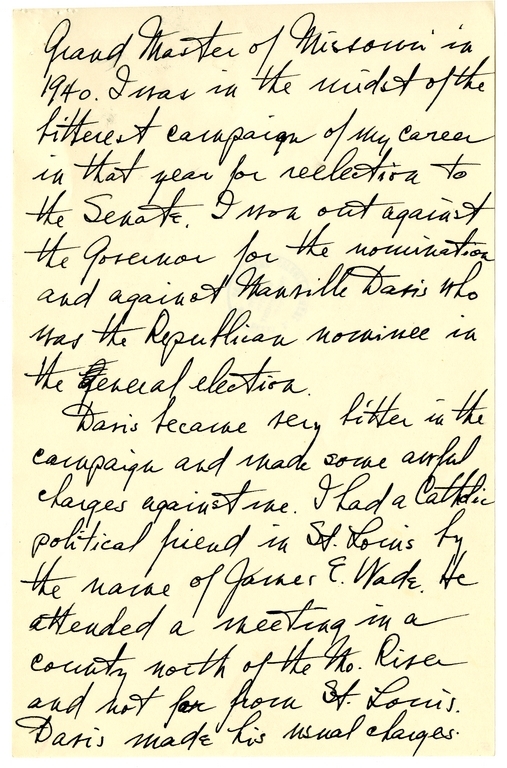 Grand Master of Missouri in
1940. I was in the midst of the
bitterest campaign of my career
in that year for reelection to
the Senate. I won out against
the Governor for the nomination
and against Manville Davis who
was the Republican nominee in
the General election.
Davis became very bitter in the
campaign and made some awful
charges against me. I had a Catholic
political friend in St. Louis by
the name of James E. Wade. He
attended a meeting in a
county north of the Mo. River
and not far from St. Louis.
Davis made his usual charges.